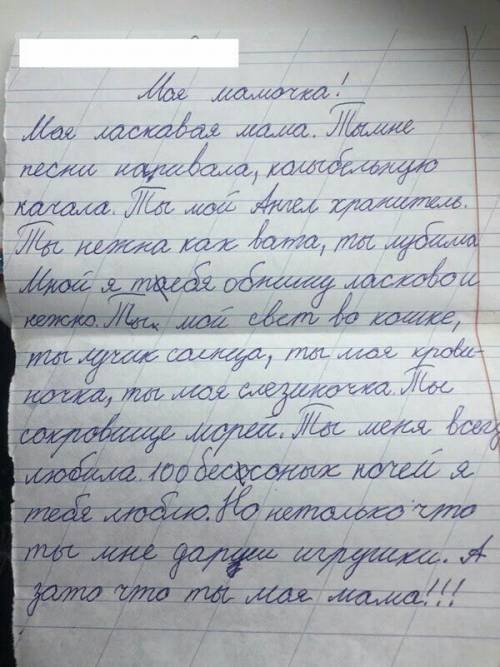 Моя мамочка!
Моя ласкавая мама. Тымне
песни наривала, колыбельную
качала. Ты мой Ангел хранитель.
Ты нежна как вата, ты лубима
Мной я тебя обнииму ласково и
нежно. Ты мой свет во кошке,
ты лучик солнца, ты моя крови-
ночка, ты моя слезиночка. Ты
сокровище морей. Ты меня всегд
любила. 100 бессоных ночей я
тебя люблю. Но нетолько что
ты мне даруеи игрушки. А
зато что ты моя мама!!!